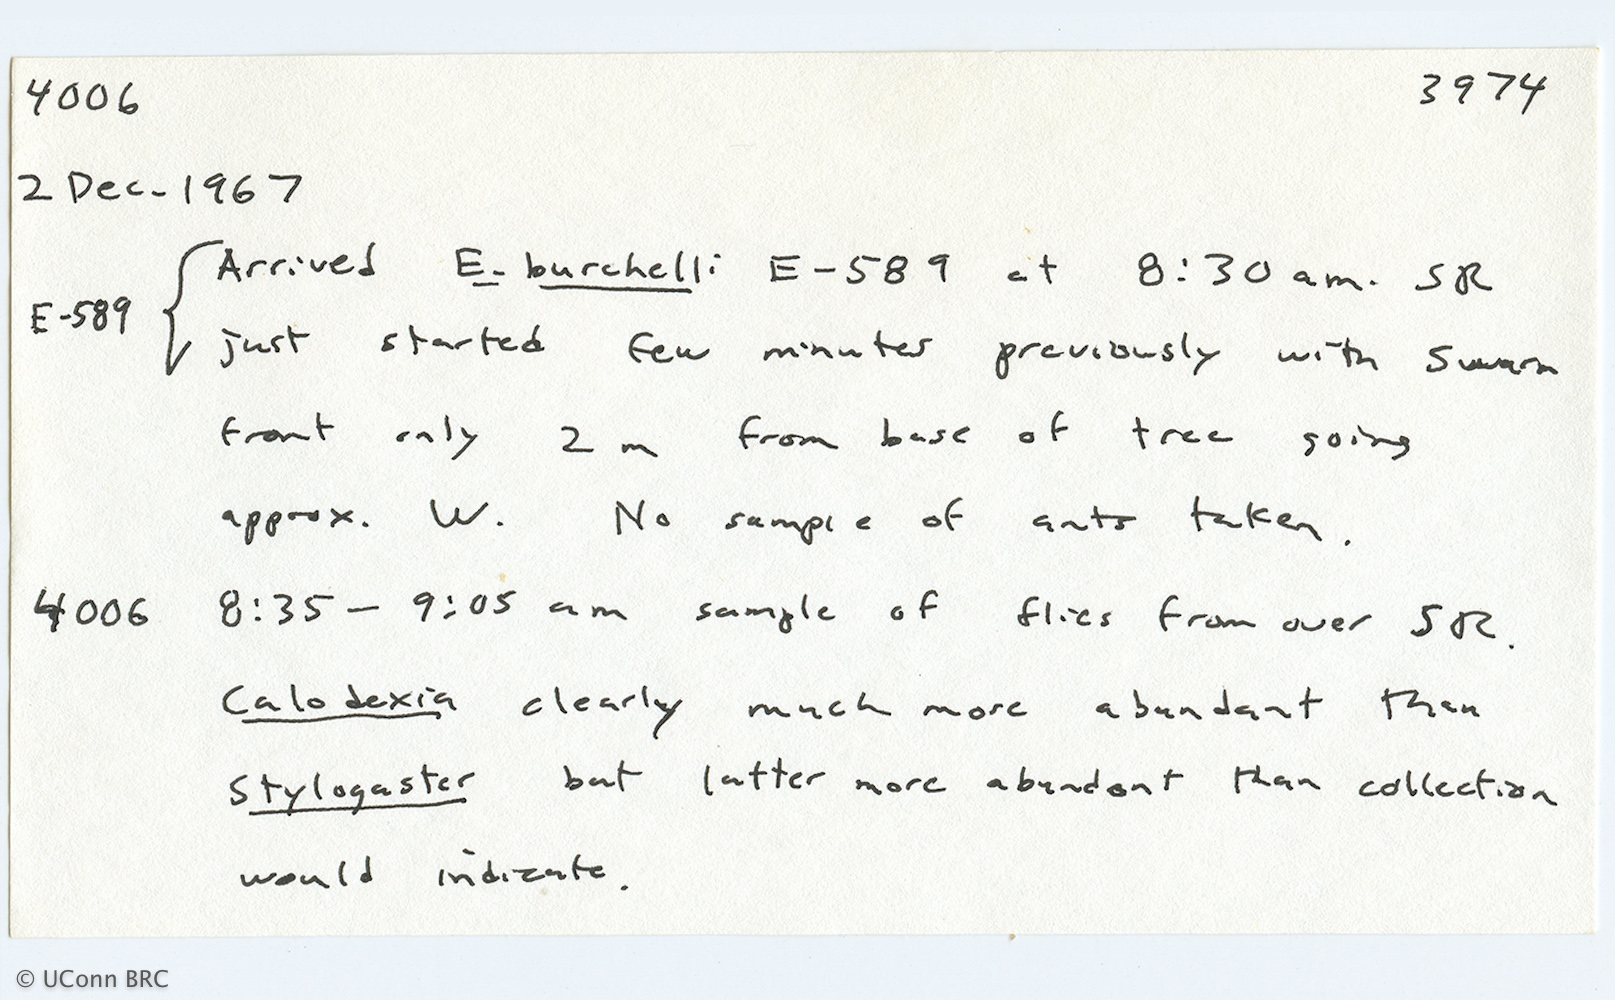 4006 3974
2 Dec-1967
Arrived E. burchelli E-589 at 8:30 am. SR
E-589
just started few minutes previously with swarm
front only 2 m from base of tree going
approx. W. No sample of ants taken.
4006 8:35 - 9:05 am sample of flies from over SR.
Calodexia clearly much more abundant than
Stylogaster but latter more abundant than collection
would indicate.
© UConn BRC